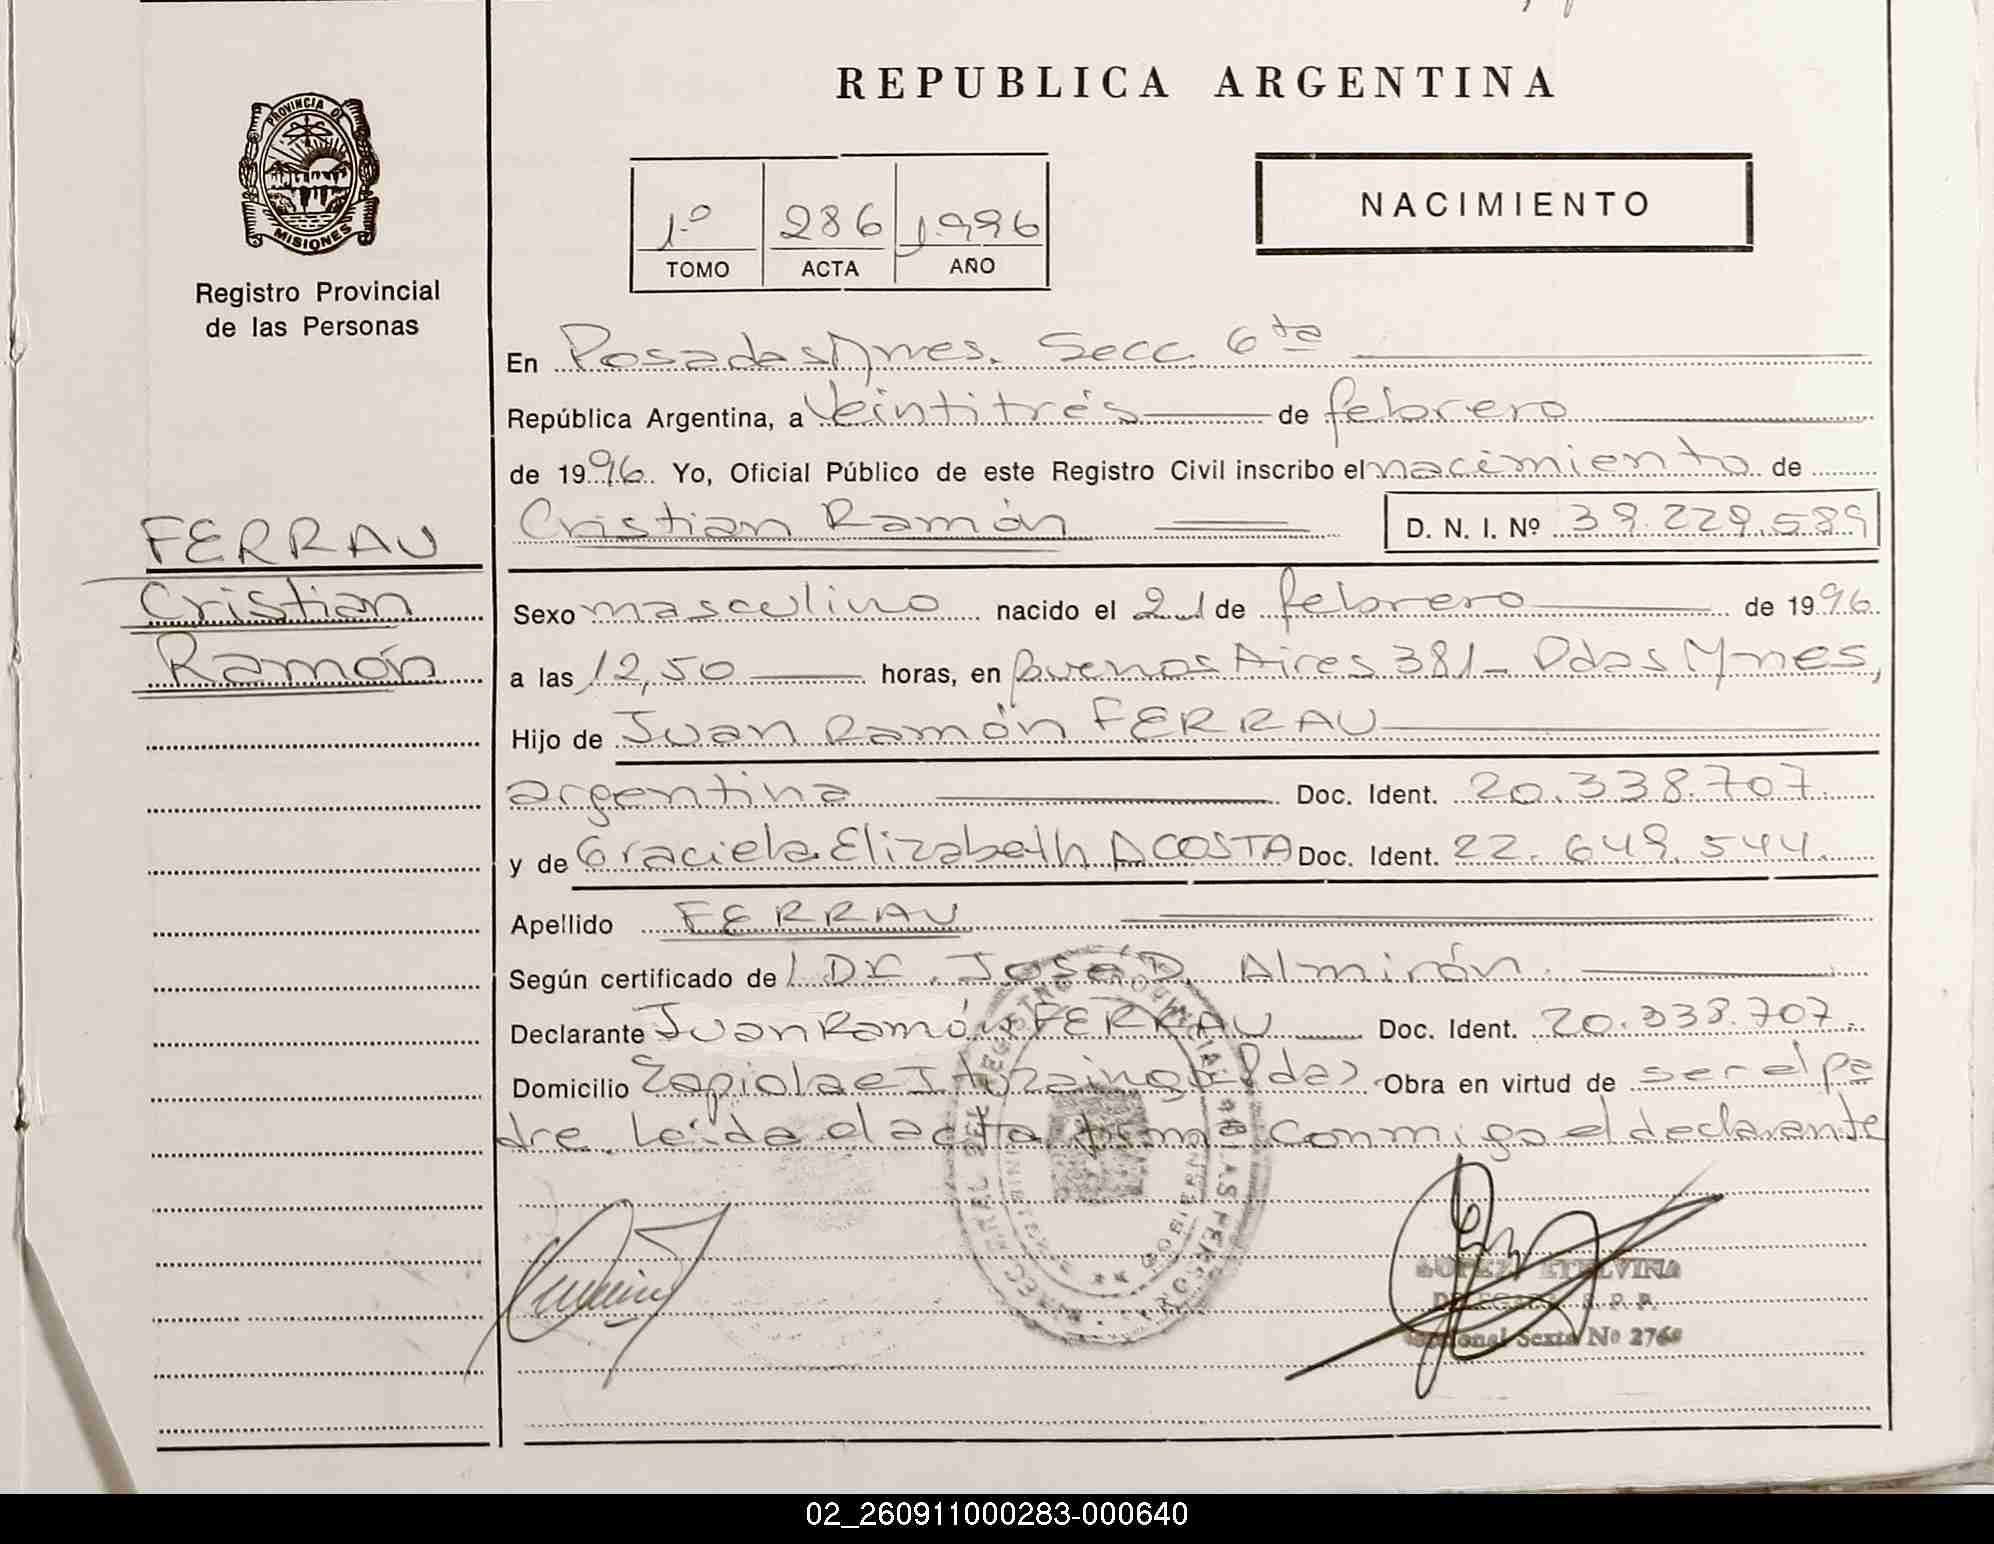 REPUBLICA ARGENTINA
PROVINCIA DE
MISIONES
Registro Provincial
de las Personas
1º 286 1996
TOMO ACTA AÑO
NACIMIENTO
En Posadas Mnes. Secc. 6ta
República Argentina, a Veintitrés de febrero
de 1996. Yo, Oficial Público de este Registro Civil inscribo el nacimiento de
Cristian Ramón D. N. I. Nº 39.229.589
FERRAU
Cristian
Ramón
Sexo masculino nacido el 21 de febrero de 1996
a las 12,50 horas, en Buenos Aires 381 - Pdas Mnes,
Hijo de Juan Ramón FERRAU
argentina Doc. Ident. 20.338.707.
y de Graciela Elizabeth ACOSTA Doc. Ident. 22.649.544.
Apellido FERRAU
Según certificado de l Dr. José D. Almirón.
Declarante Juan Ramón FERRAU Doc. Ident. 20.338.707.
Domicilio Zapiola e Ituzaingo Pdas. Obra en virtud de ser el pa
dre. Leída el acta firma conmigo el declarante
LOPEZ ETELVINA
DELEGADA R. P. P.
Seccional Sexta Nº 276
02_260911000283-000640